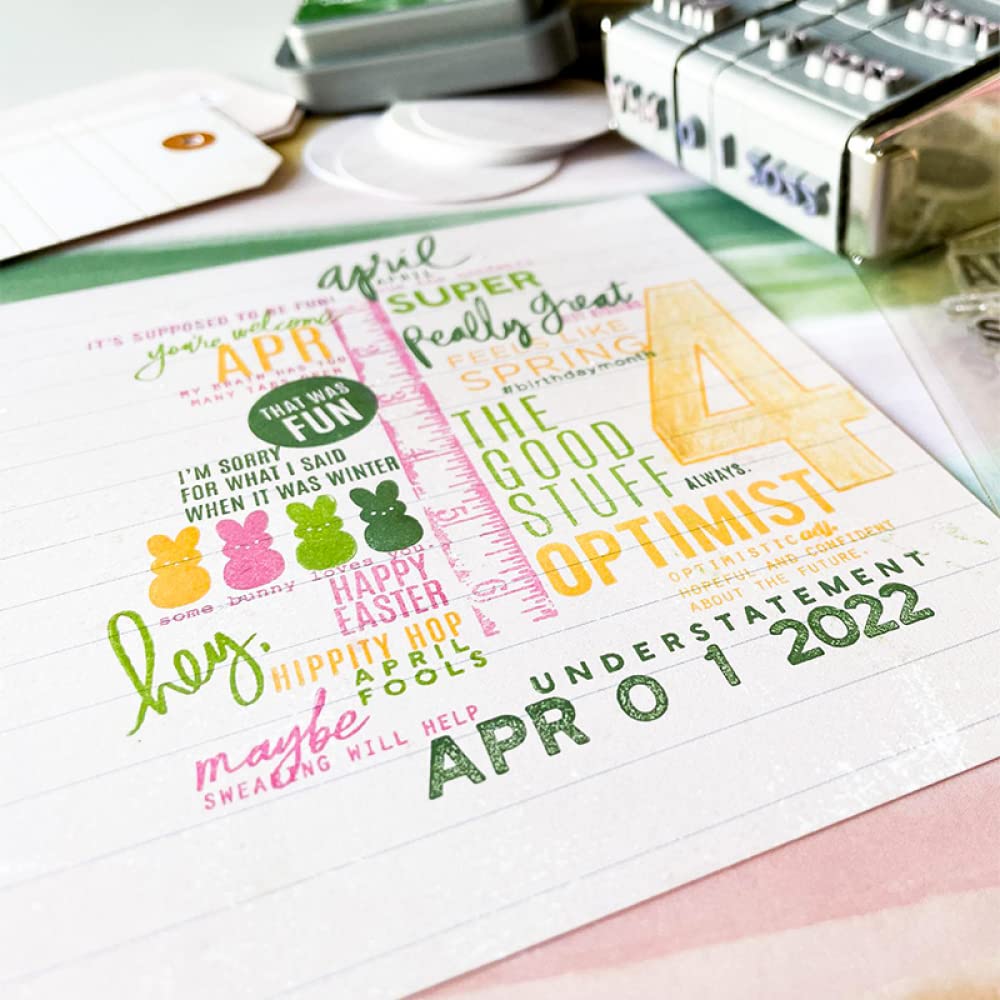 april
APRIL
IT'S SUPPOSED TO BE FUN!
you're welcome
APR
MY BRAIN HAS TOO
MANY TABS OPEN
THAT WAS
FUN
I'M SORRY
FOR WHAT I SAID
WHEN IT WAS WINTER
some bunny loves you.
HAPPY
EASTER
hey.
HIPPITY HOP
APRIL
FOOLS
maybe
SWEARING WILL HELP
5
6
SUPER
Really great
FEELS LIKE
SPRING
#birthdaymonth
4
THE
GOOD
STUFF
ALWAYS.
OPTIMIST
OPTIMISTIC adj.
HOPEFUL AND CONFIDENT
ABOUT THE FUTURE.
UNDERSTATEMENT
APR 0 1 2022